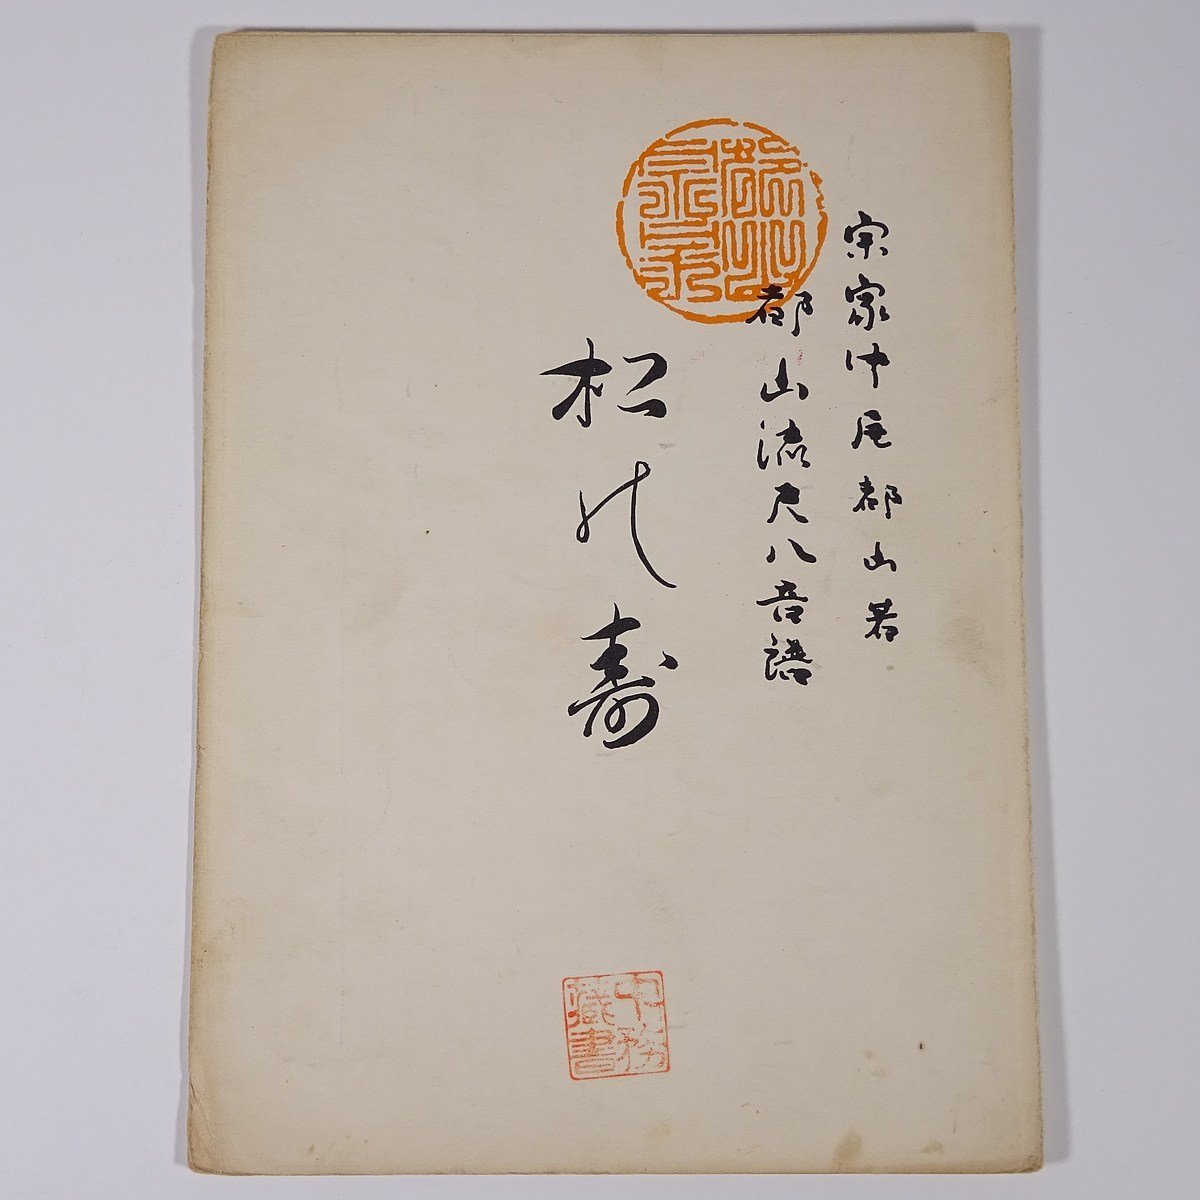 宗家中尾都山著
都山流尺八音譜
松の寿
蔵書